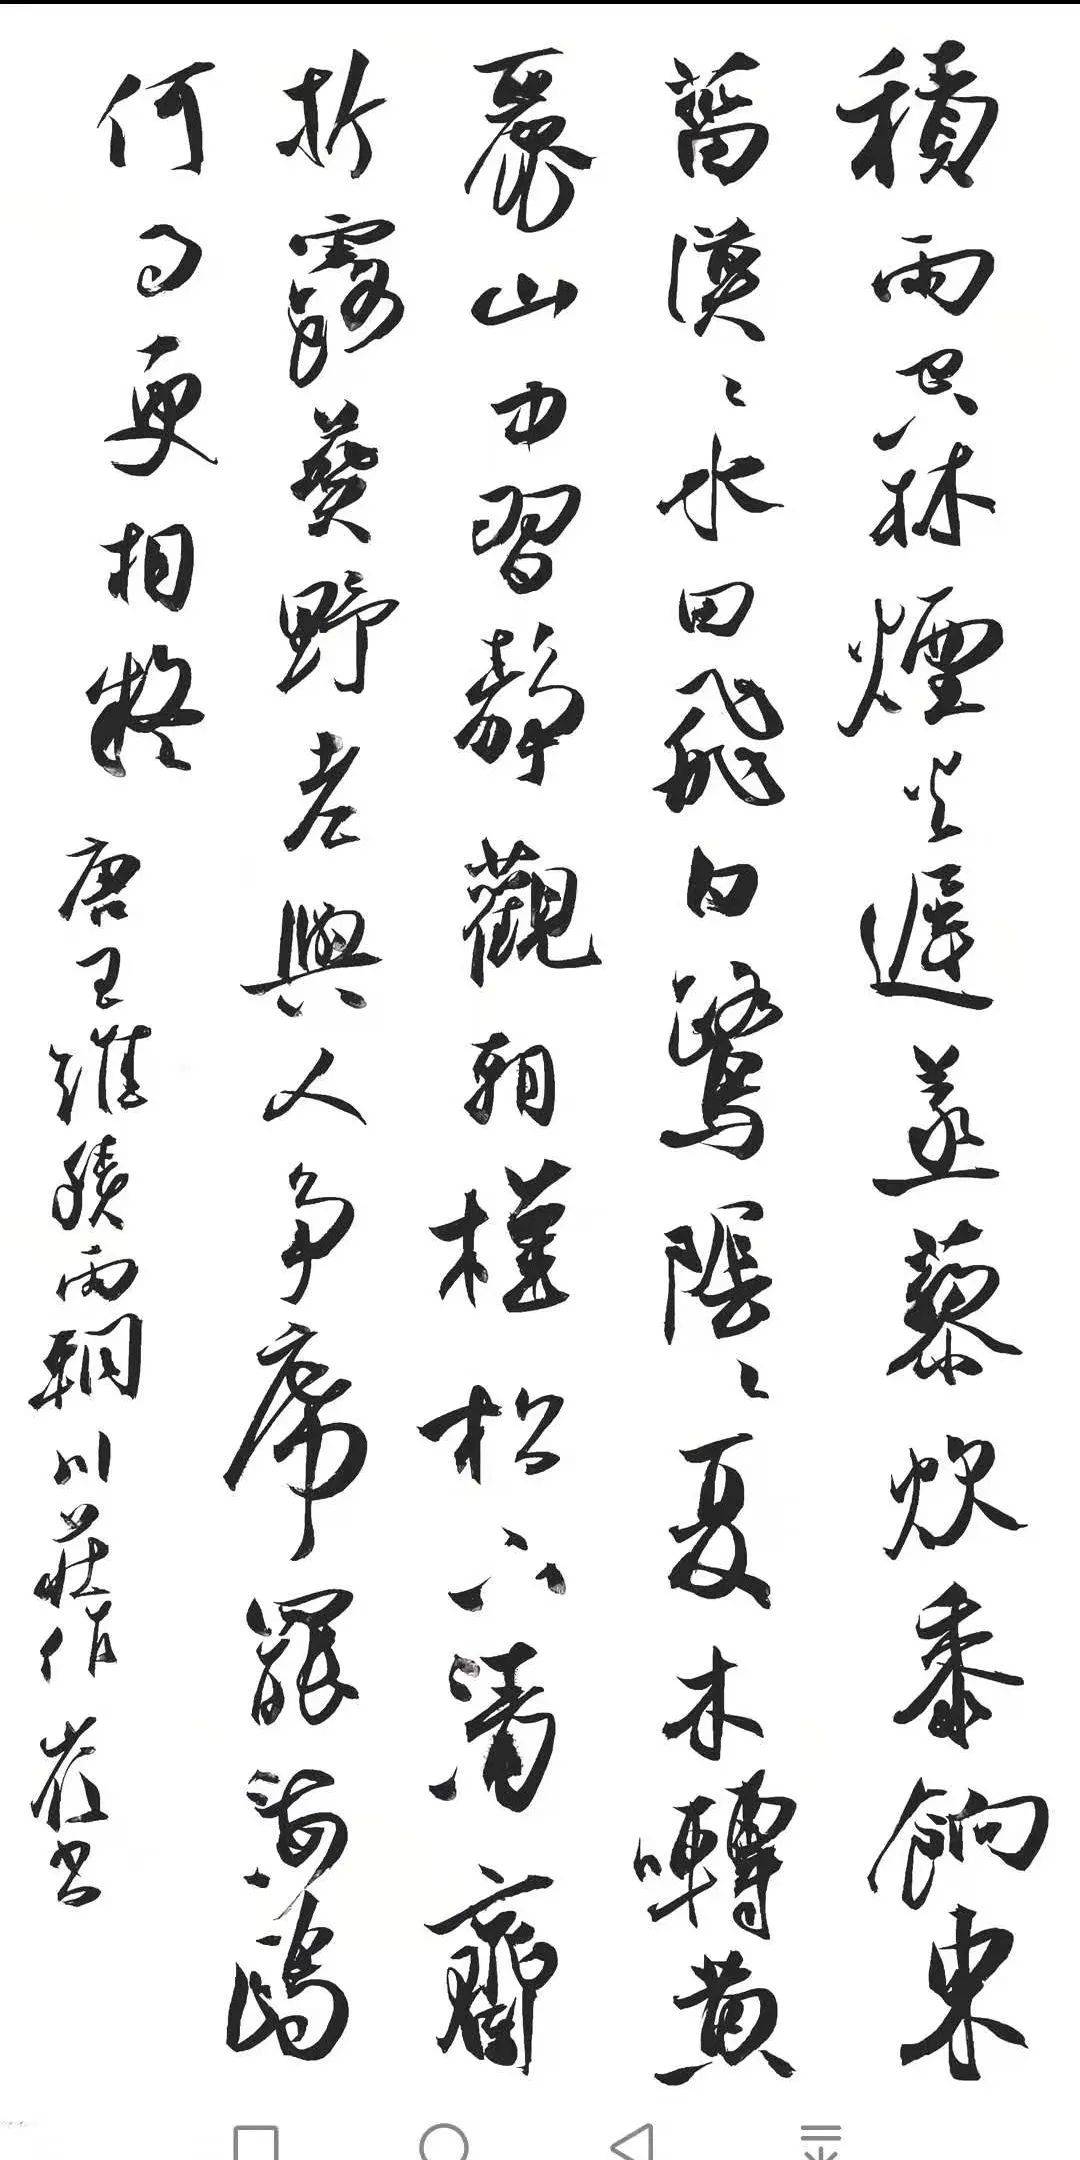 積雨空林煙火遲蒸藜炊黍餉東
菑漠〻水田飛白鷺陰〻夏木囀黃
麗山中習靜觀朝槿松下清齋
折露葵野老與人争席罷海鷗
何事更相疑 唐王維積雨輞川莊作 書